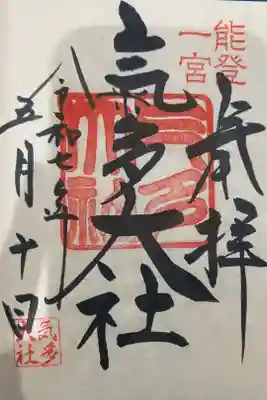 能登
一宮
奉拝
氣多大社
令和七年
五月十日
氣多
大社
氣多
大社